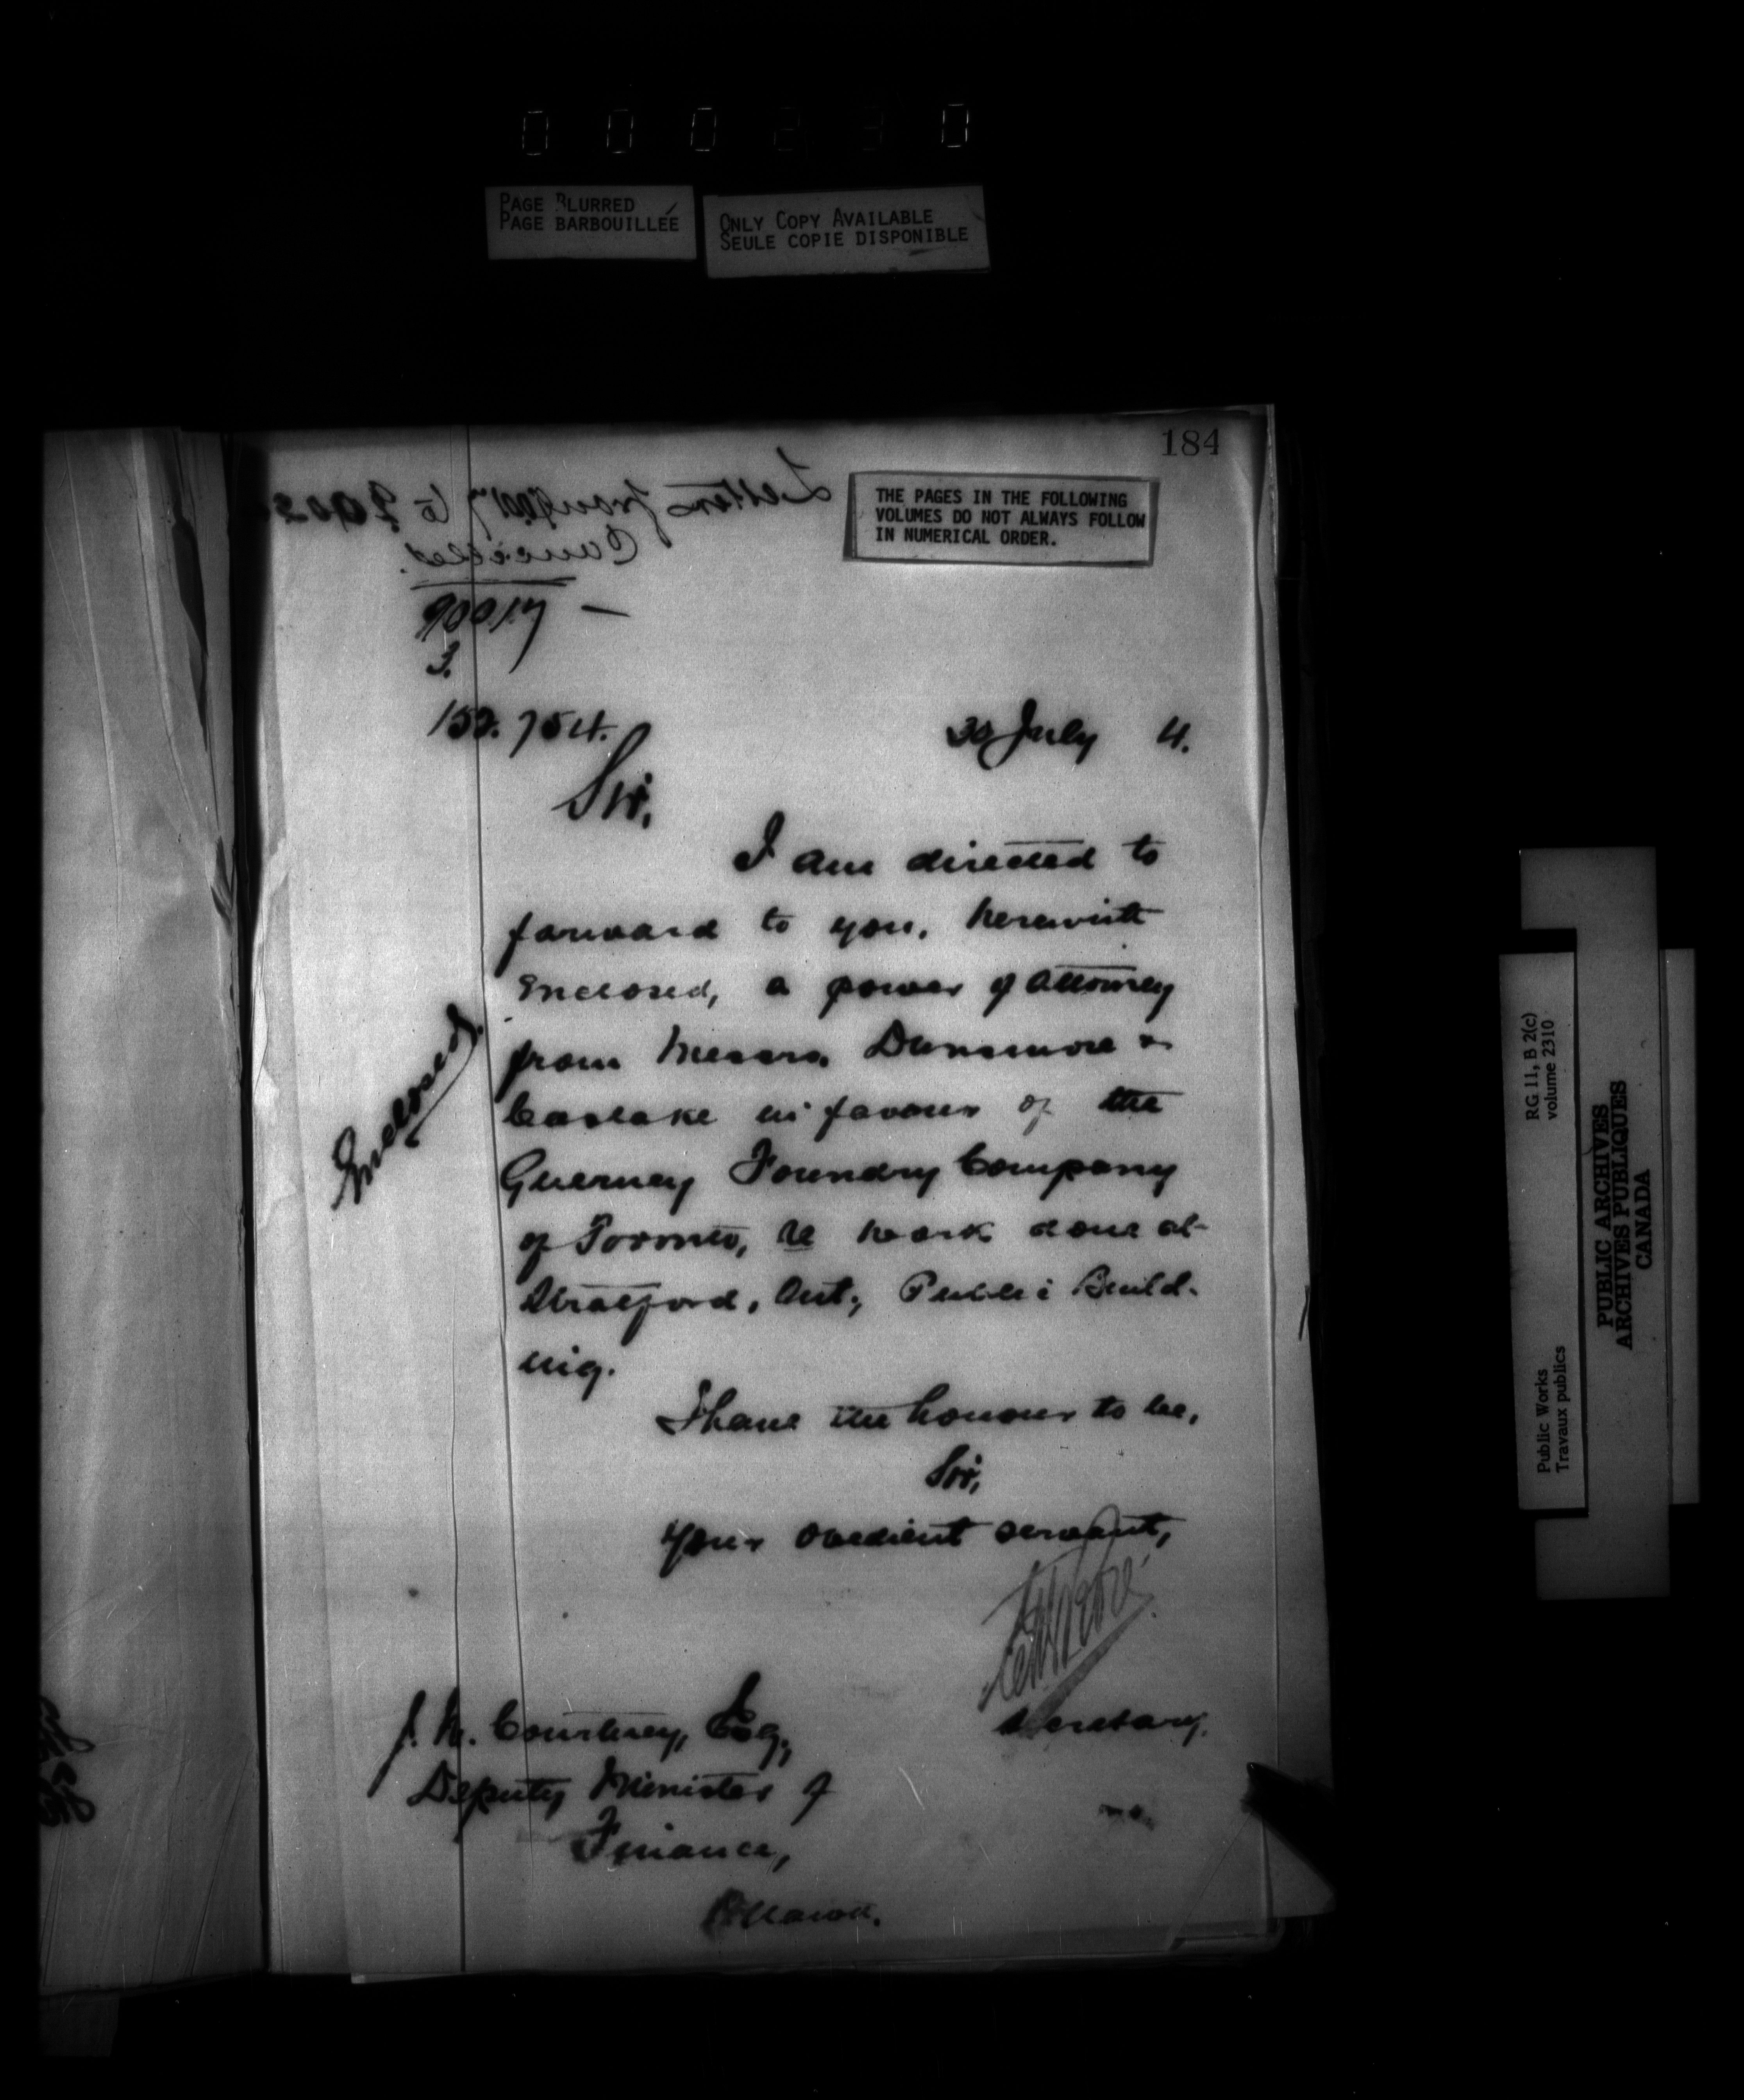 000230
PAGE BLURRED
PAGE BARBOUILLÉE
ONLY COPY AVAILABLE
SEULE COPIE DISPONIBLE
184
THE PAGES IN THE FOLLOWING
VOLUMES DO NOT ALWAYS FOLLOW
IN NUMERICAL ORDER.
Letters from 90017 to
Cancelled.
90017 —
3.
152.754.
30 July 4.
Sir,
I am directed to
forward to you, herewith
enclosed, a power of attorney
from Messrs. Dunsmore &
Easlake in favour of the
Guerney Foundry Company
of Toronto, re work done at
Stratford, Ont., Public Build-
ing.
Enclosed.
I have the honour to be,
Sir,
Your obedient servant,
Secretary.
J. M. Courtney, Esq.,
Deputy Minister of
Finance,
Ottawa.
RG 11, B 2(c)
volume 2310
Public Works
Travaux publics
PUBLIC ARCHIVES
ARCHIVES PUBLIQUES
CANADA